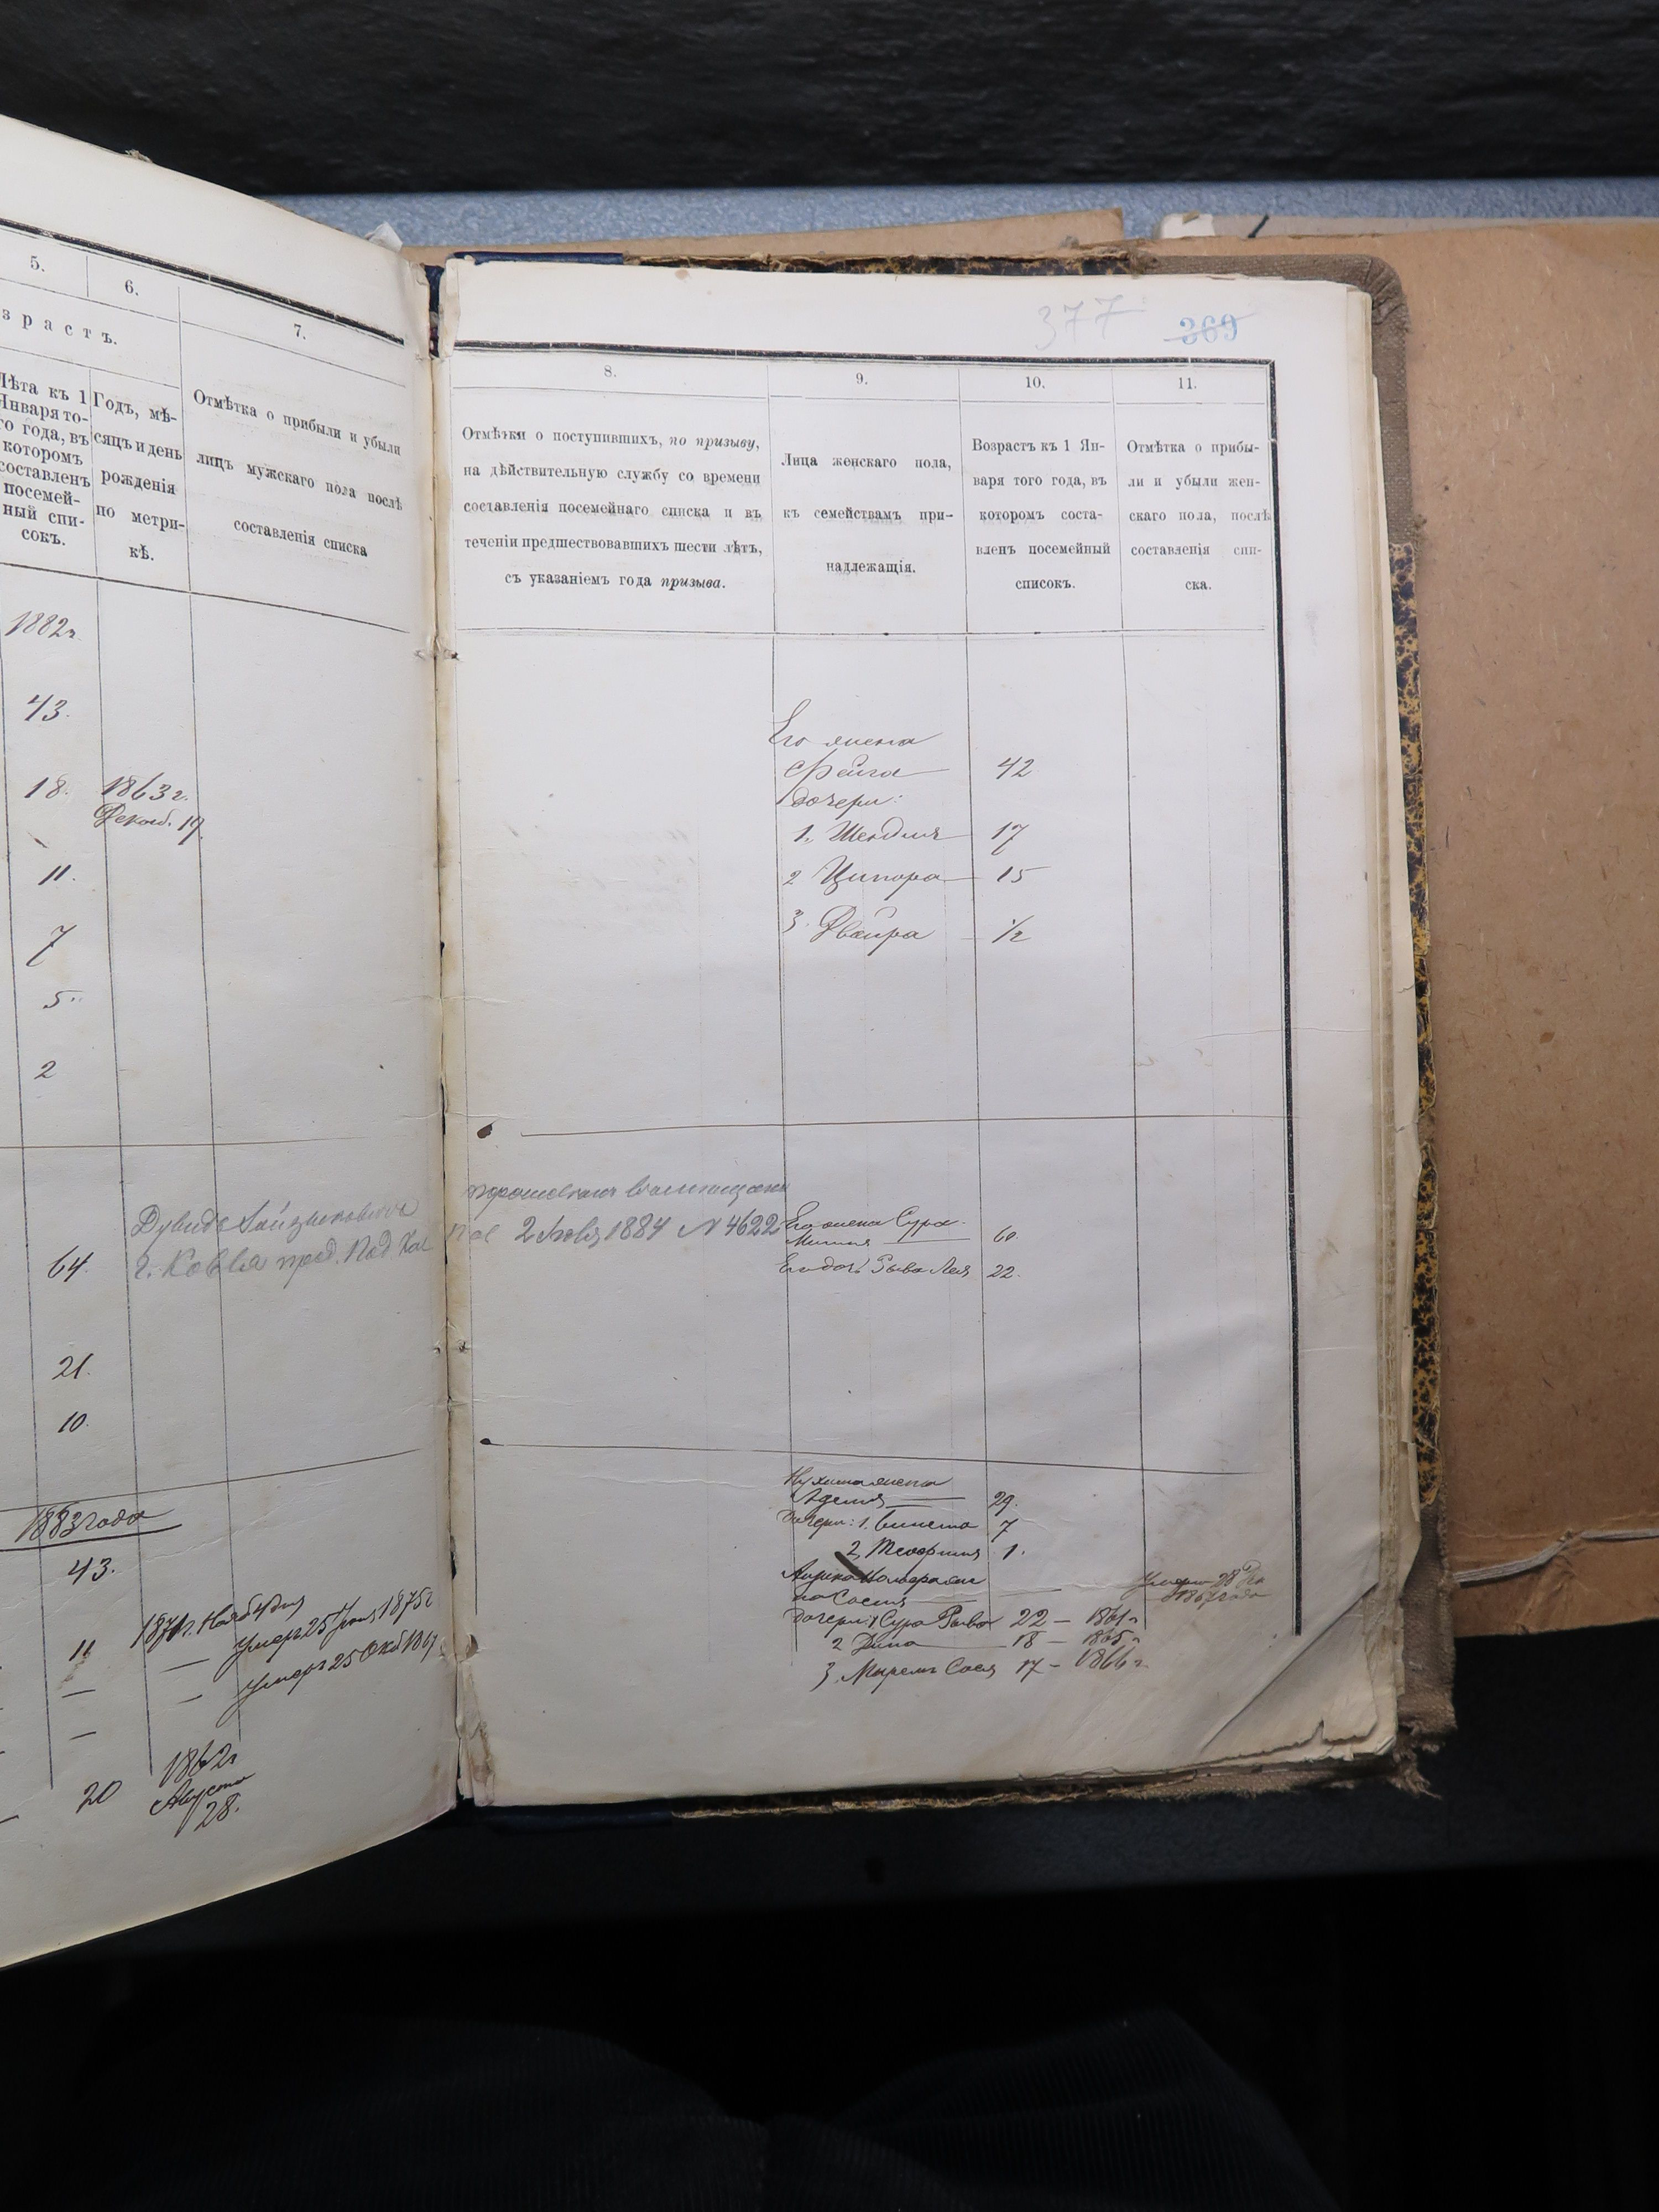 5.
6.
7.
зрастъ.
Лѣта къ 1
Января то-
го года, въ
которомъ
составленъ
посемей-
ный спи-
сокъ.
Годъ, мѣ-
сяцъ и день
рожденія
по метри-
кѣ.
Отмѣтка о прибыли и убыли
лицъ мужскаго пола послѣ
составленія списка
1882г
43.
18. 1863 г.
Декаб. 19.
11.
7
5.
2
Дувидъ
64. г. Ковля
21.
10.
1883 года
43.
11 1871г. Нояб 4 дня
— — Умеръ 25 1875г
— — Умеръ 25 Окб 1867
20 1862г
Августа
28.
377
369
8.
9.
10.
11.
Отмѣтки о поступившихъ, по призыву,
на дѣйствительную службу со времени
составленія посемейнаго списка и въ
теченіи предшествовавшихъ шести лѣтъ,
съ указаніемъ года призыва.
Лица женскаго пола,
къ семействамъ при-
надлежащія.
Возрастъ къ 1 Ян-
варя того года, въ
которомъ соста-
вленъ посемейный
списокъ.
Отмѣтка о прибы-
ли и убыли жен-
скаго пола, послѣ
составленія спи-
ска.
Его жена
Фейга 42
дочери:
1. Шендля 17
2 Ципора 15
3 Двейра 1/2
2 1884 N 4622
Его жена Сура
60
Его дочь Рыва Лея 22.
жена
29.
дочери: 1. 7
2, 1.
Умерла 28
1867 года
дочери: 1 Сура Рывка 22 — 1861г
2 Дина 18 — 1865г
3, Мирель Сося 17 — 1866г